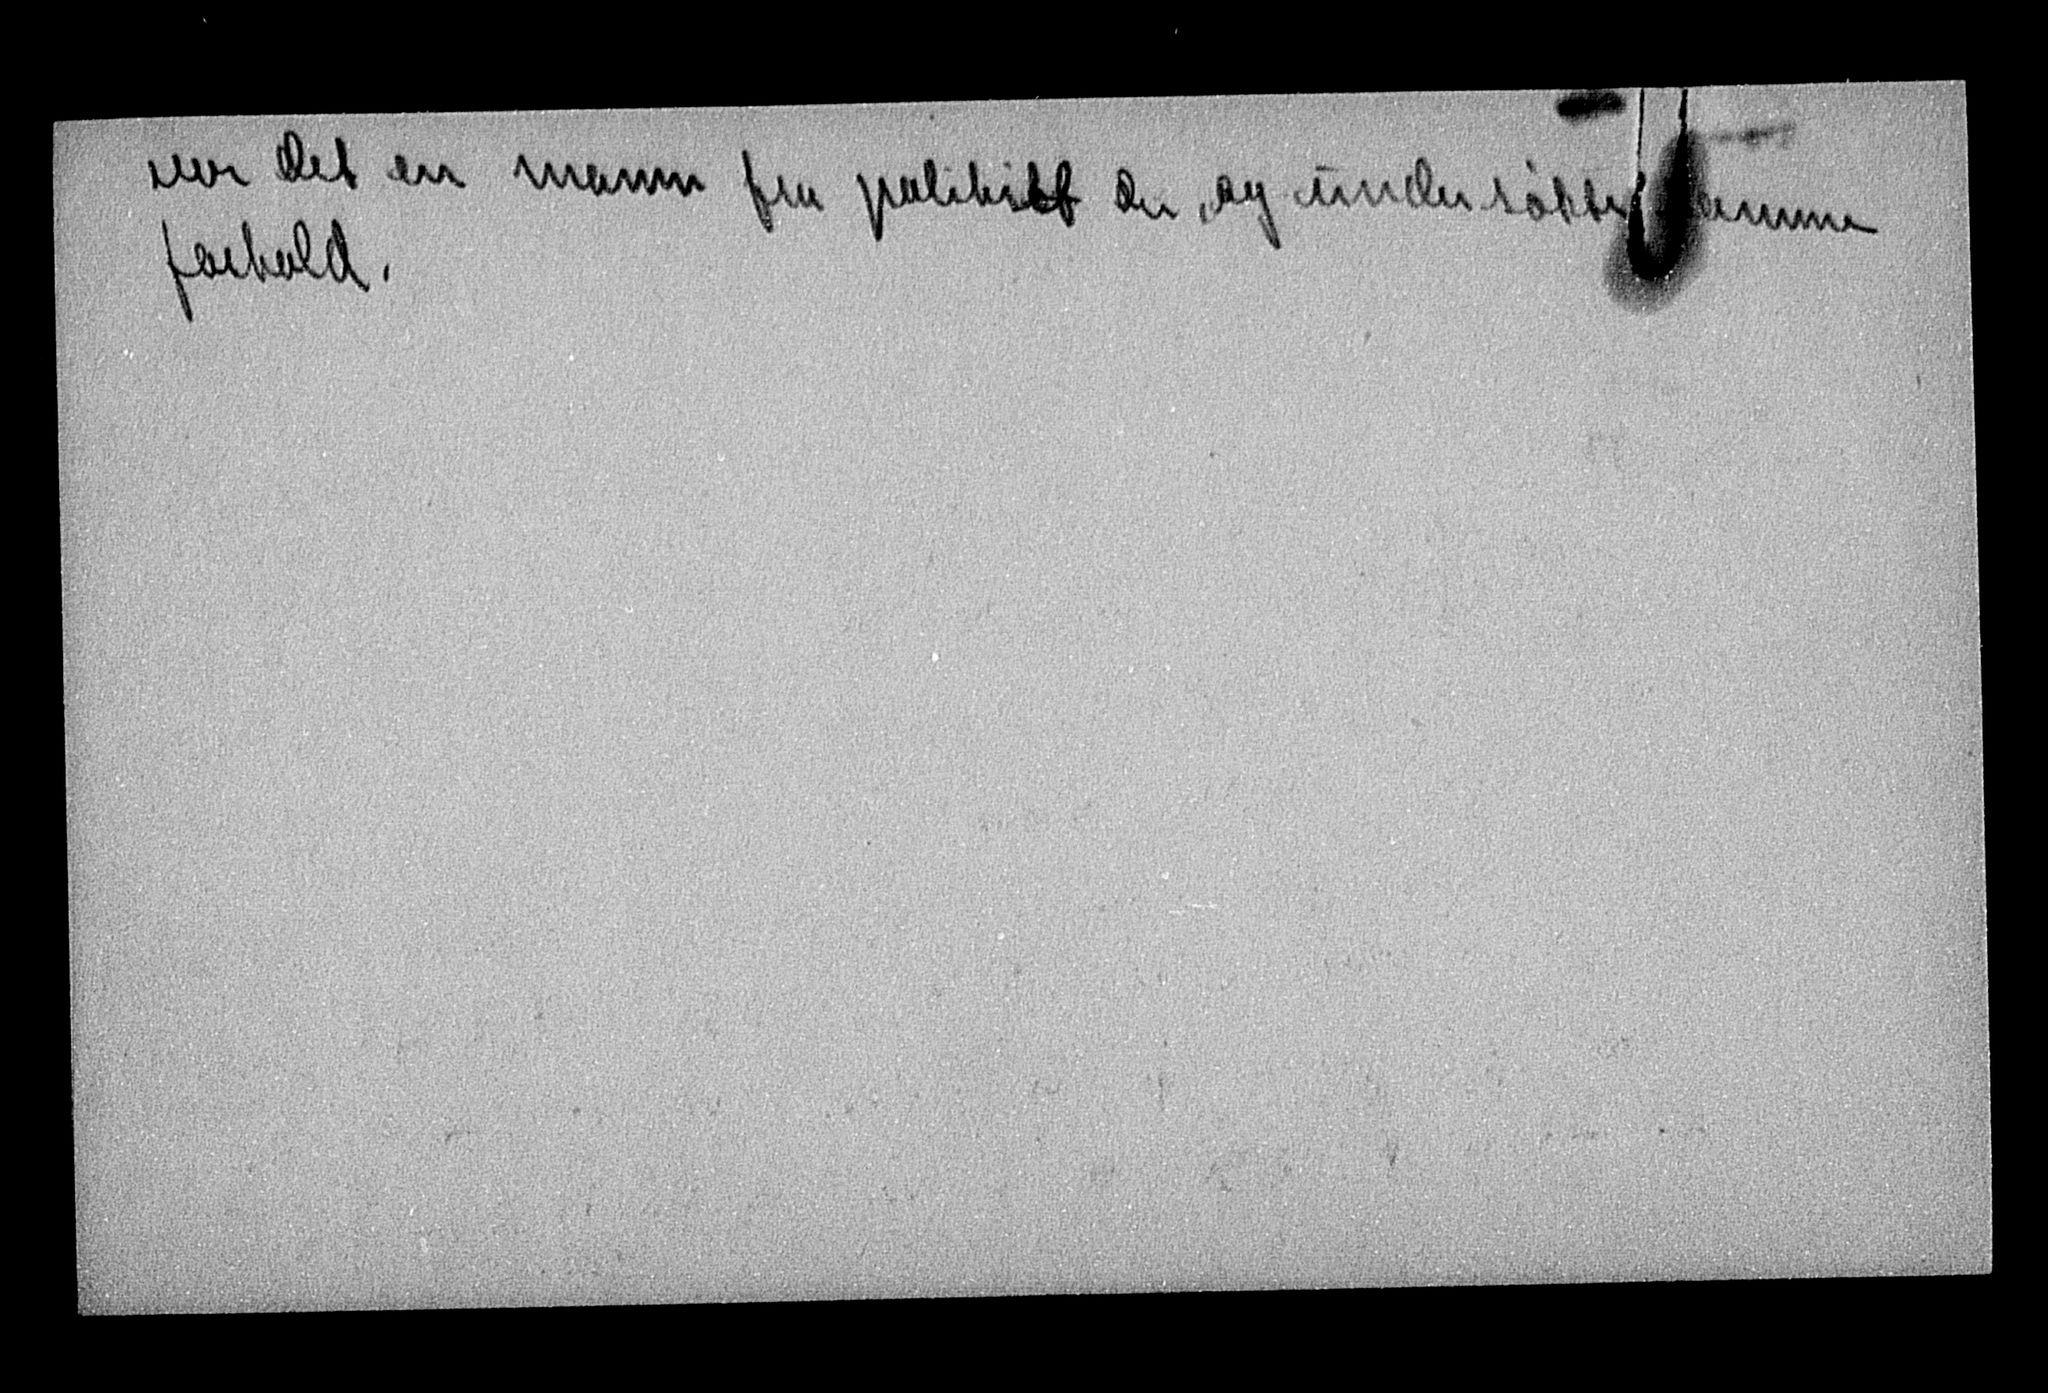 var det en mann fra politiet der, og undersøkte samme
forhold.